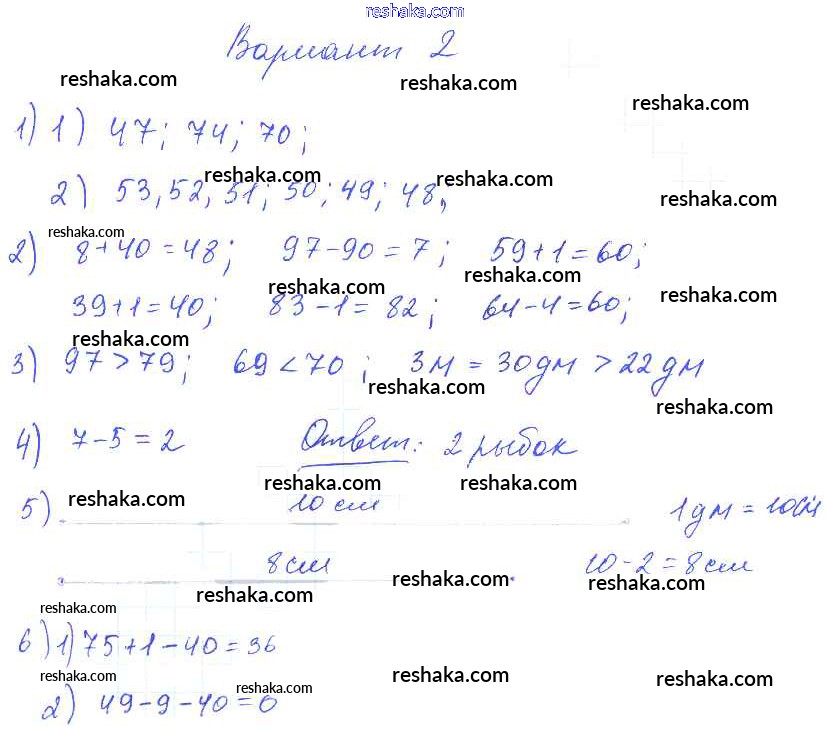 reshaka.com
Вариант 2
reshaka.com reshaka.com
reshaka.com
1) 1) 47; 74; 70;
reshaka.com reshaka.com
2) 53, 52, 51; 50; 49; 48,
reshaka.com
reshaka.com
2) 8+40=48; 97-90=7; 59+1=60;
reshaka.com reshaka.com reshaka.com
39+1=40; 83-1=82; 64-4=60;
reshaka.com
3) 97>79; 69<70; 3м = 30дм > 22дм
reshaka.com
reshaka.com
4) 7-5=2 Ответ: 2 рыбок
reshaka.com reshaka.com reshaka.com
5) 10 см 1дм = 10см
8см 10-2=8см
reshaka.com reshaka.com reshaka.com
reshaka.com
6) 1) 75+1-40=36
reshaka.com reshaka.com reshaka.com
reshaka.com
2) 49-9-40=0
reshaka.com